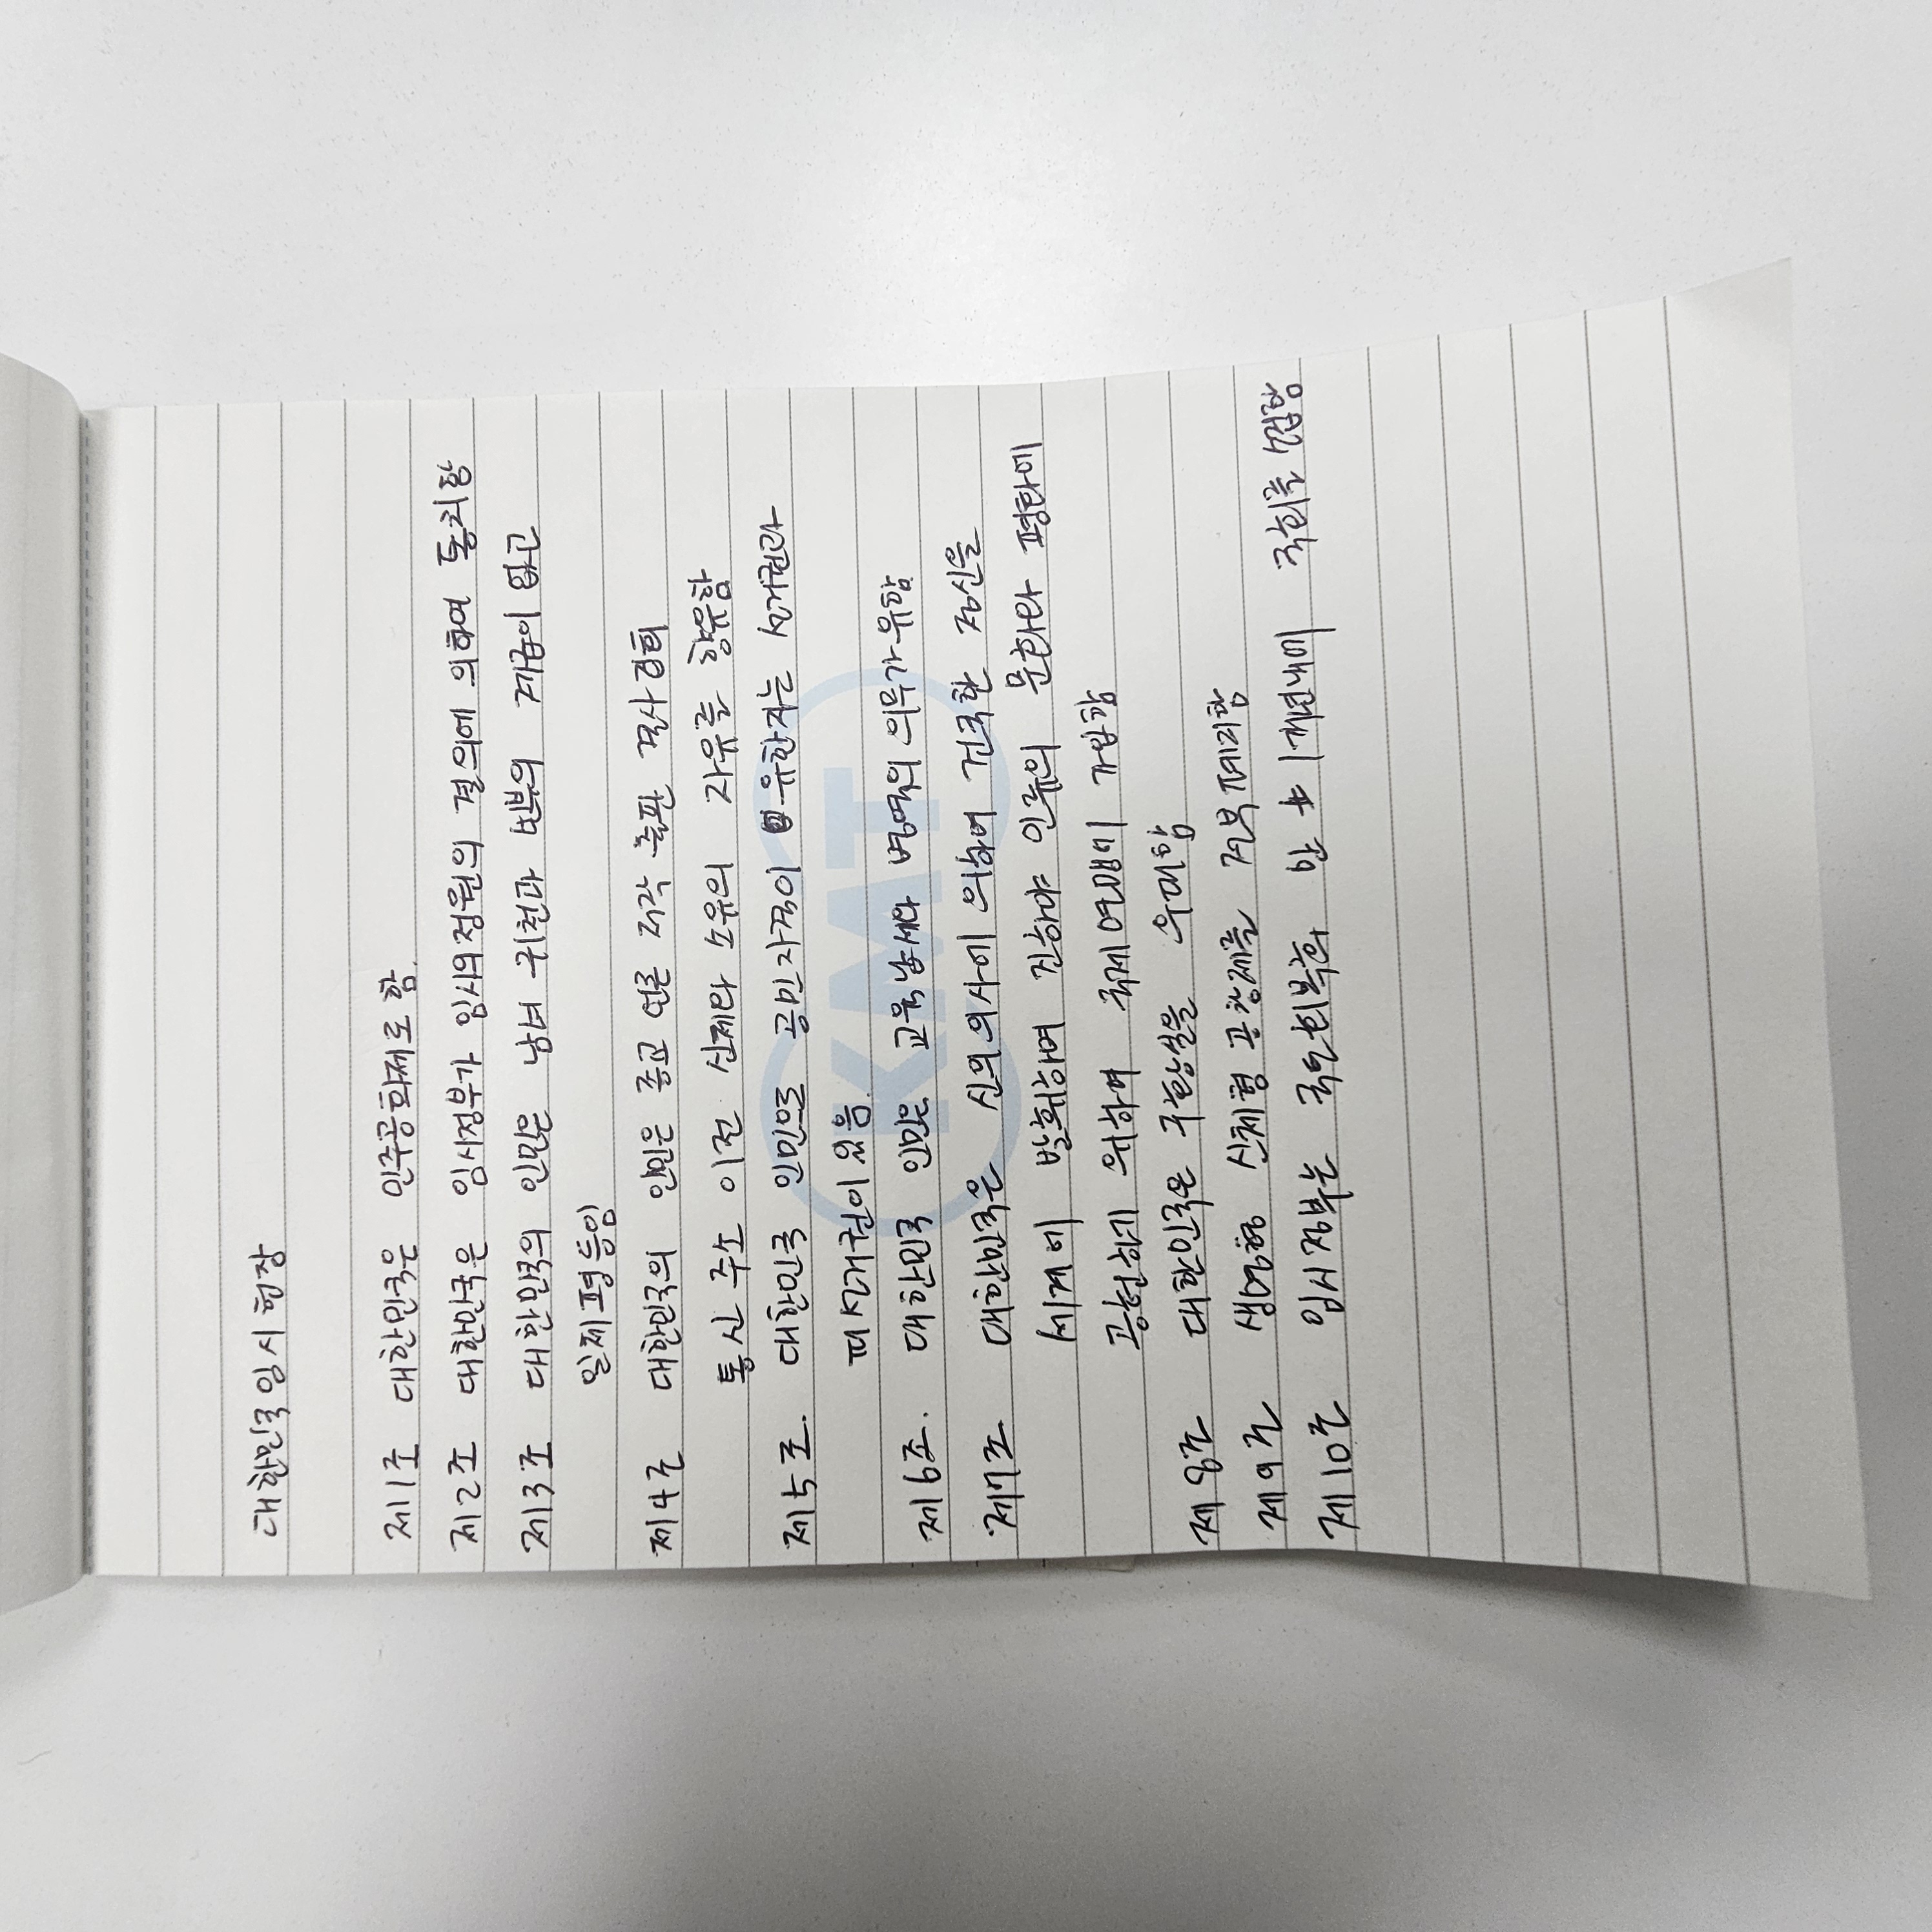 대한민국임시헌장
제1조 대한민국은 민주공화제로 함.
제2조 대한민국은 임시정부가 임시의정원의 결의에 의하여 통치함
제3조 대한민국의 인민은 남녀 귀천과 빈부의 계급이 없고
일제평등임
제4조 대한민국의 인민은 종교 언론 저작 출판 결사 집회
통신 주소 이전 신체와 소유의 자유를 향유함
제5조. 대한민국 인민으로 공민자격이 유한자는 선거권과
피선거권이 있음.
제6조. 대한민국 인민은 교육 납세와 병역의 의무가 유함
제7조 대한민국은 신의 의사에 의하여 건국한 정신을
세계에 발휘하며 진하야 인류의 문화와 평화에
공헌하게 위하여 국제연맹이 가입함
제8조 대한민국은 구황실을 우대함
제9조 생명형 신체형 공창제를 전부폐지함
제10조 임시정부는 국토회복후 만 1개년내에 국회를 소집함
KMT